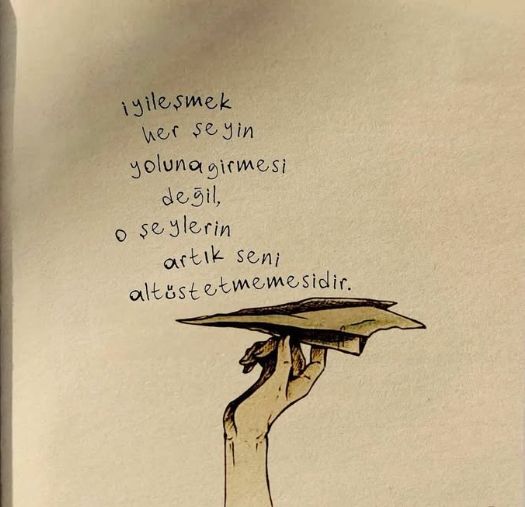 iyileşmek
her şeyin
yoluna girmesi
değil,
o şeylerin
artık seni
altüst etmemesidir.